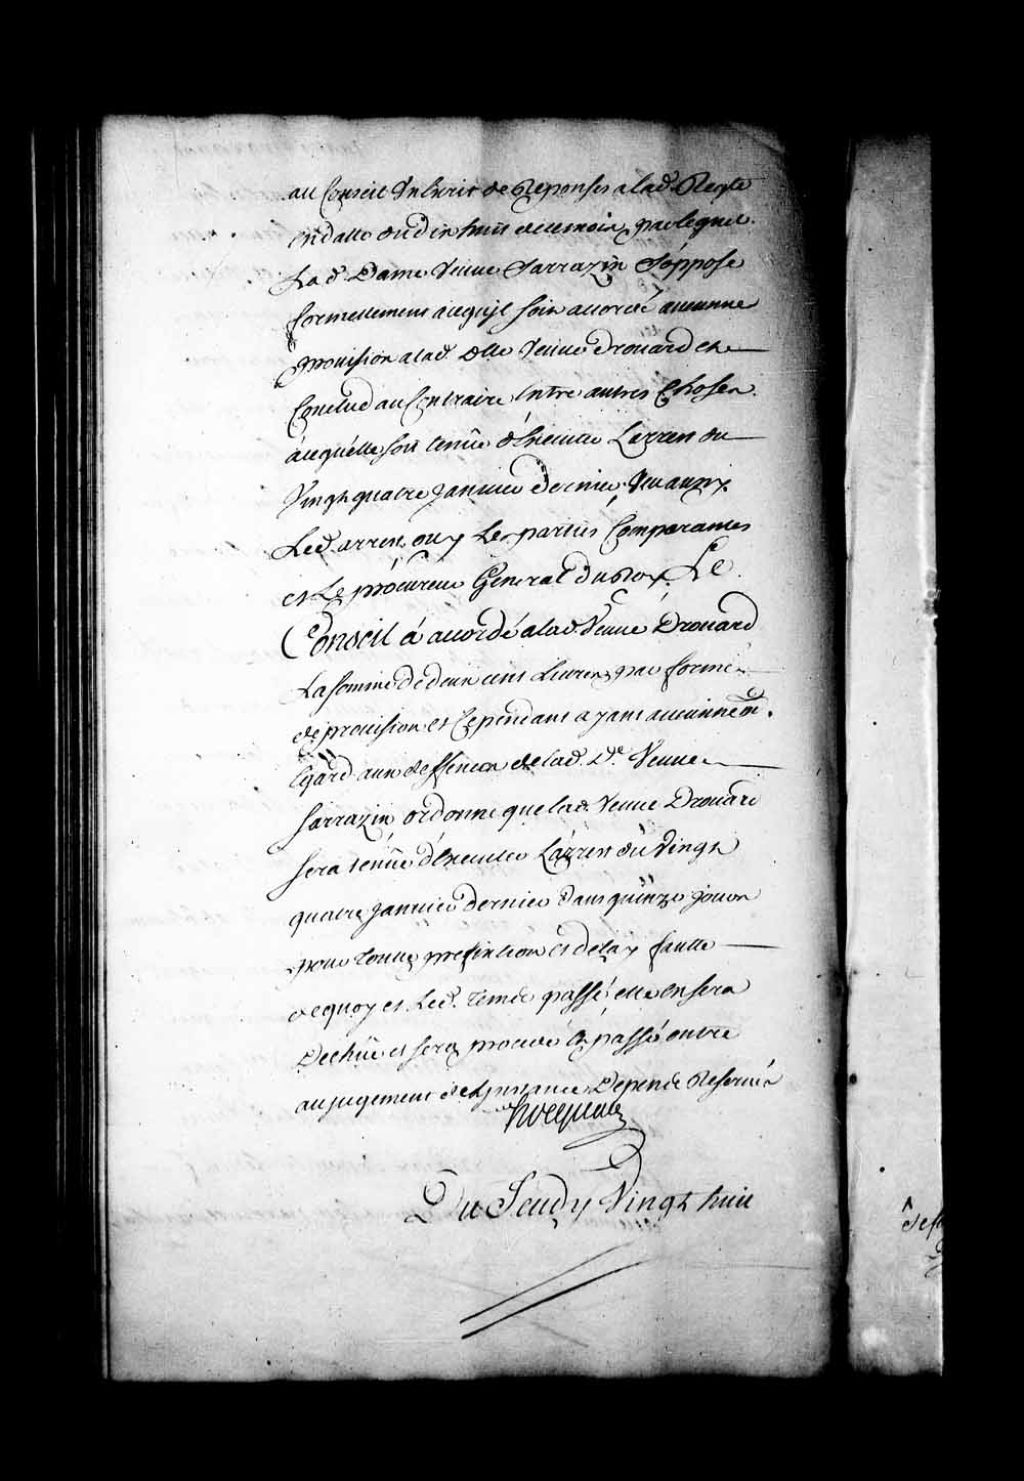 au Conseil un Ecrit de Reponses a lad. Reqte
en datte du dix huit de ce mois par lequel
Lad. Dame Veuve Sarrazin s'oppose
formellement a ce qu'jl soit accordé aucunne
provision a lad. delle Veuve Drouard et
Conclud au Contraire Entre autres Choses
a ce qu'elle soit tenüe d'Executer L'arrest du
Vingt quatre Janvier dernier. Veu aussy
Led. arrest, ouy Les parties Comparantes
et Le procureur General du Roy. Le
Conseil á accordé a lad. Veuve Drouard
La somme de deux cens Livres par forme
de provision et Cependant ayant aucunnemt.
Egard aux deffences de lad. De. Veuve
Sarrazin ordonne que lad. Veuve Drouard
sera tenüe d'Executer L'arrest du Vingt
quatre Janvier dernier dans quinze jours
pour toutte prefixtion et delay faute
de quoy et Led. temps passé, elle en sera
Dechüe et sera procedé & passé outre
au jugement de L'jnstance, Depends Reservés
hocquart
Du Jeudy Vingt huit